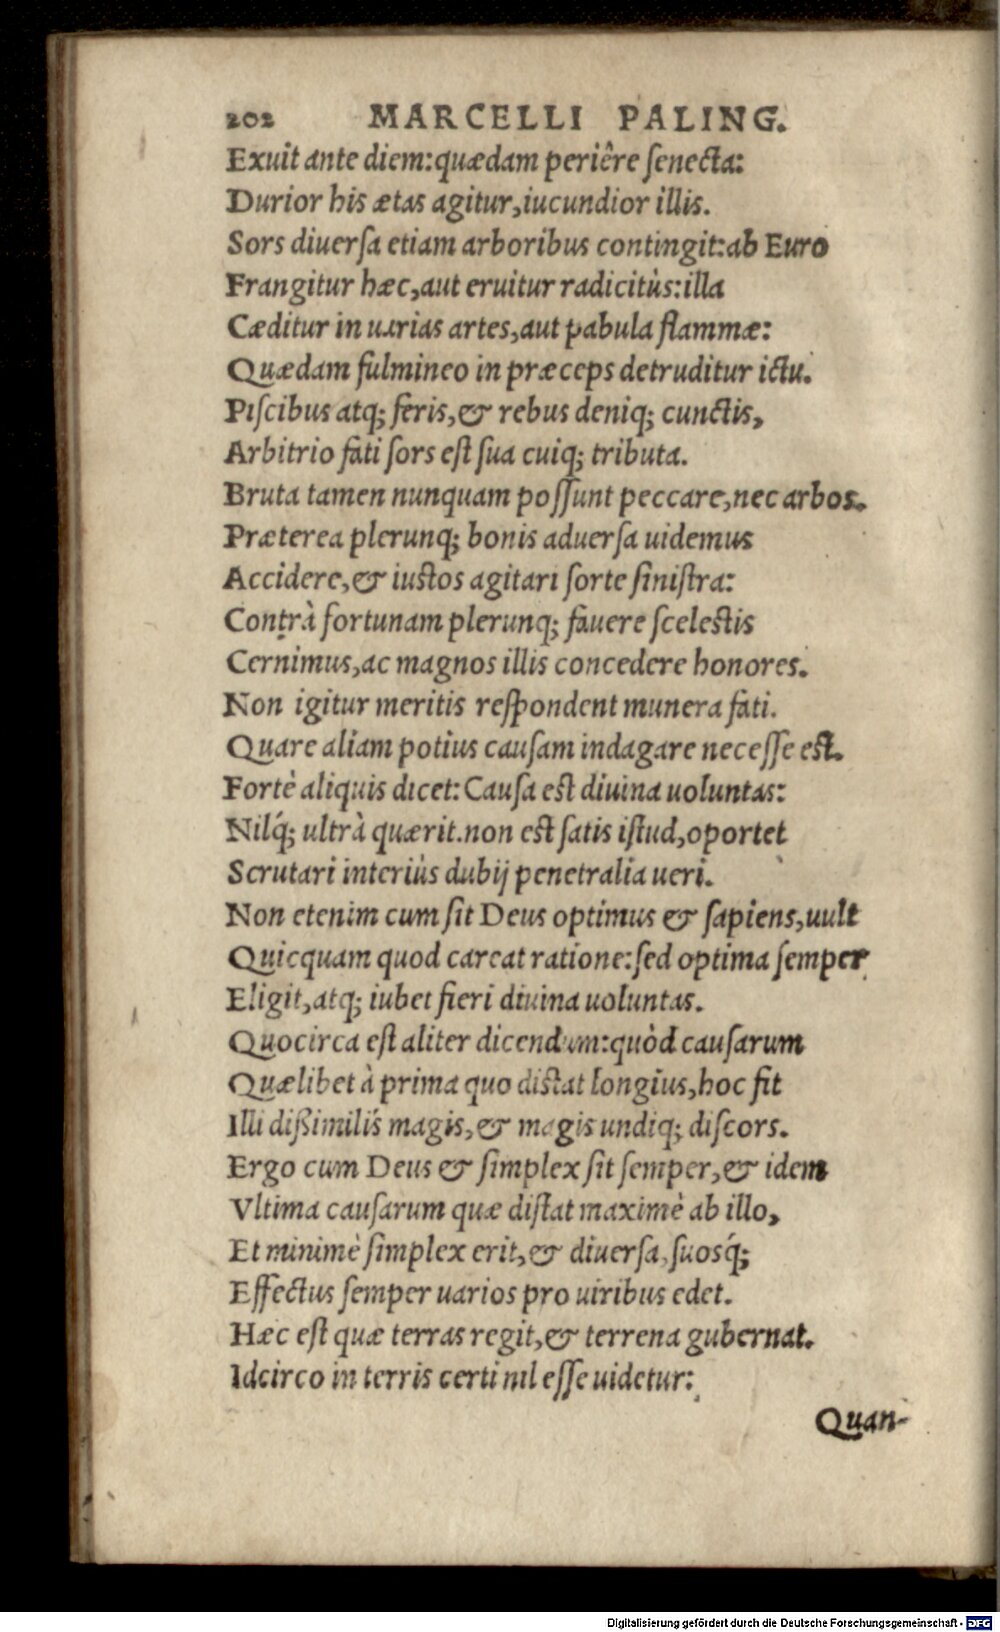 202 MARCELLI PALING.
Exuit ante diem:quædam periêre ſenecta:
Durior his ætas agitur,iucundior illis.
Sors diuerſa etiam arboribus contingit:ab Euro
Frangitur hæc,aut eruitur radicitùs:illa
Cæditur in uarias artes,aut pabula flammæ:
Quædam fulmineo in præceps detruditur ictu.
Piſcibus atq; feris,& rebus deniq; cunctis,
Arbitrio fati ſors eſt ſua cuiq; tributa.
Bruta tamen nunquam poſſunt peccare,nec arbos.
Præterea plerunq; bonis aduerſa uidemus
Accidere,& iuſtos agitari ſorte ſiniſtra:
Contrà fortunam plerunq; fauere ſceleſtis
Cernimus,ac magnos illis concedere honores.
Non igitur meritis reſpondent munera fati.
Quare aliam potius cauſam indagare neceſſe eſt.
Fortè aliquis dicet: Cauſa eſt diuina uoluntas:
Nilq́; ultrà quærit.non eſt ſatis iſtud,oportet
Scrutari interiùs dubij penetralia ueri.
Non etenim cum ſit Deus optimus & ſapiens,uult
Quicquam quod careat ratione:ſed optima ſemper
Eligit,atq; iubet fieri diuina uoluntas.
Quocirca eſt aliter dicendum:quòd cauſarum
Quælibet à prima quo diſtat longius,hoc fit
Illi dißimilis magis,& magis undiq; diſcors.
Ergo cum Deus & ſimplex ſit ſemper,& idem
Vltima cauſarum quæ diſtat maximè ab illo,
Et minimè ſimplex erit,& diuerſa,ſuosq́;
Effectus ſemper uarios pro uiribus edet.
Hæc eſt quæ terras regit,& terrena gubernat.
Idcirco in terris certi nil eſſe uidetur:
Quan-
Digitalisierung gefördert durch die Deutsche Forschungsgemeinschaft - DFG